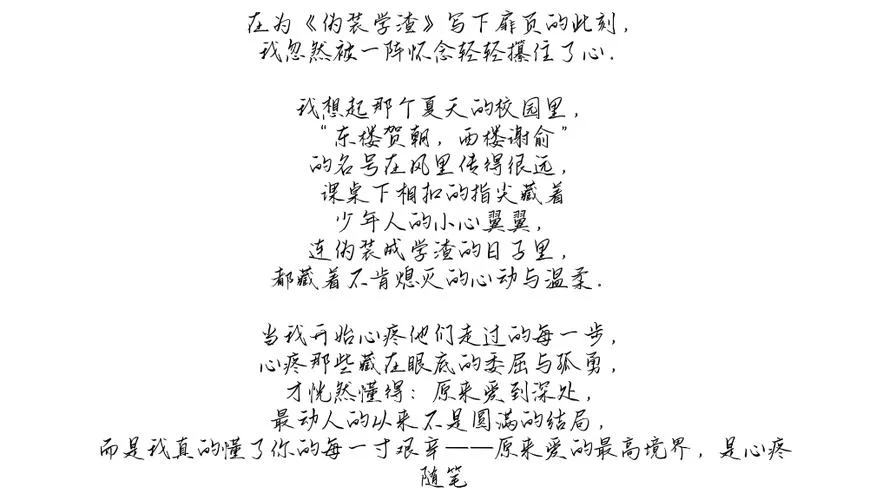 在为《伪装学渣》写下扉页的此刻，
我忽然被一阵怀念轻轻攥住了心.
我想起那个夏天的校园里，
“东楼贺朝，西楼谢俞”
的名号在风里传得很远，
课桌下相扣的指尖藏着
少年人的小心翼翼，
连伪装成学渣的日子里，
都藏着不肯熄灭的心动与温柔.
当我开始心疼他们走过的每一步，
心疼那些藏在眼底的委屈与孤勇，
才恍然懂得：原来爱到深处，
最动人的从来不是圆满的结局，
而是我真的懂了你的每一寸艰辛——原来爱的最高境界，是心疼
随笔